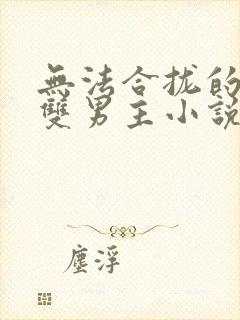 無法合拢的
雙男主小說
塵浮